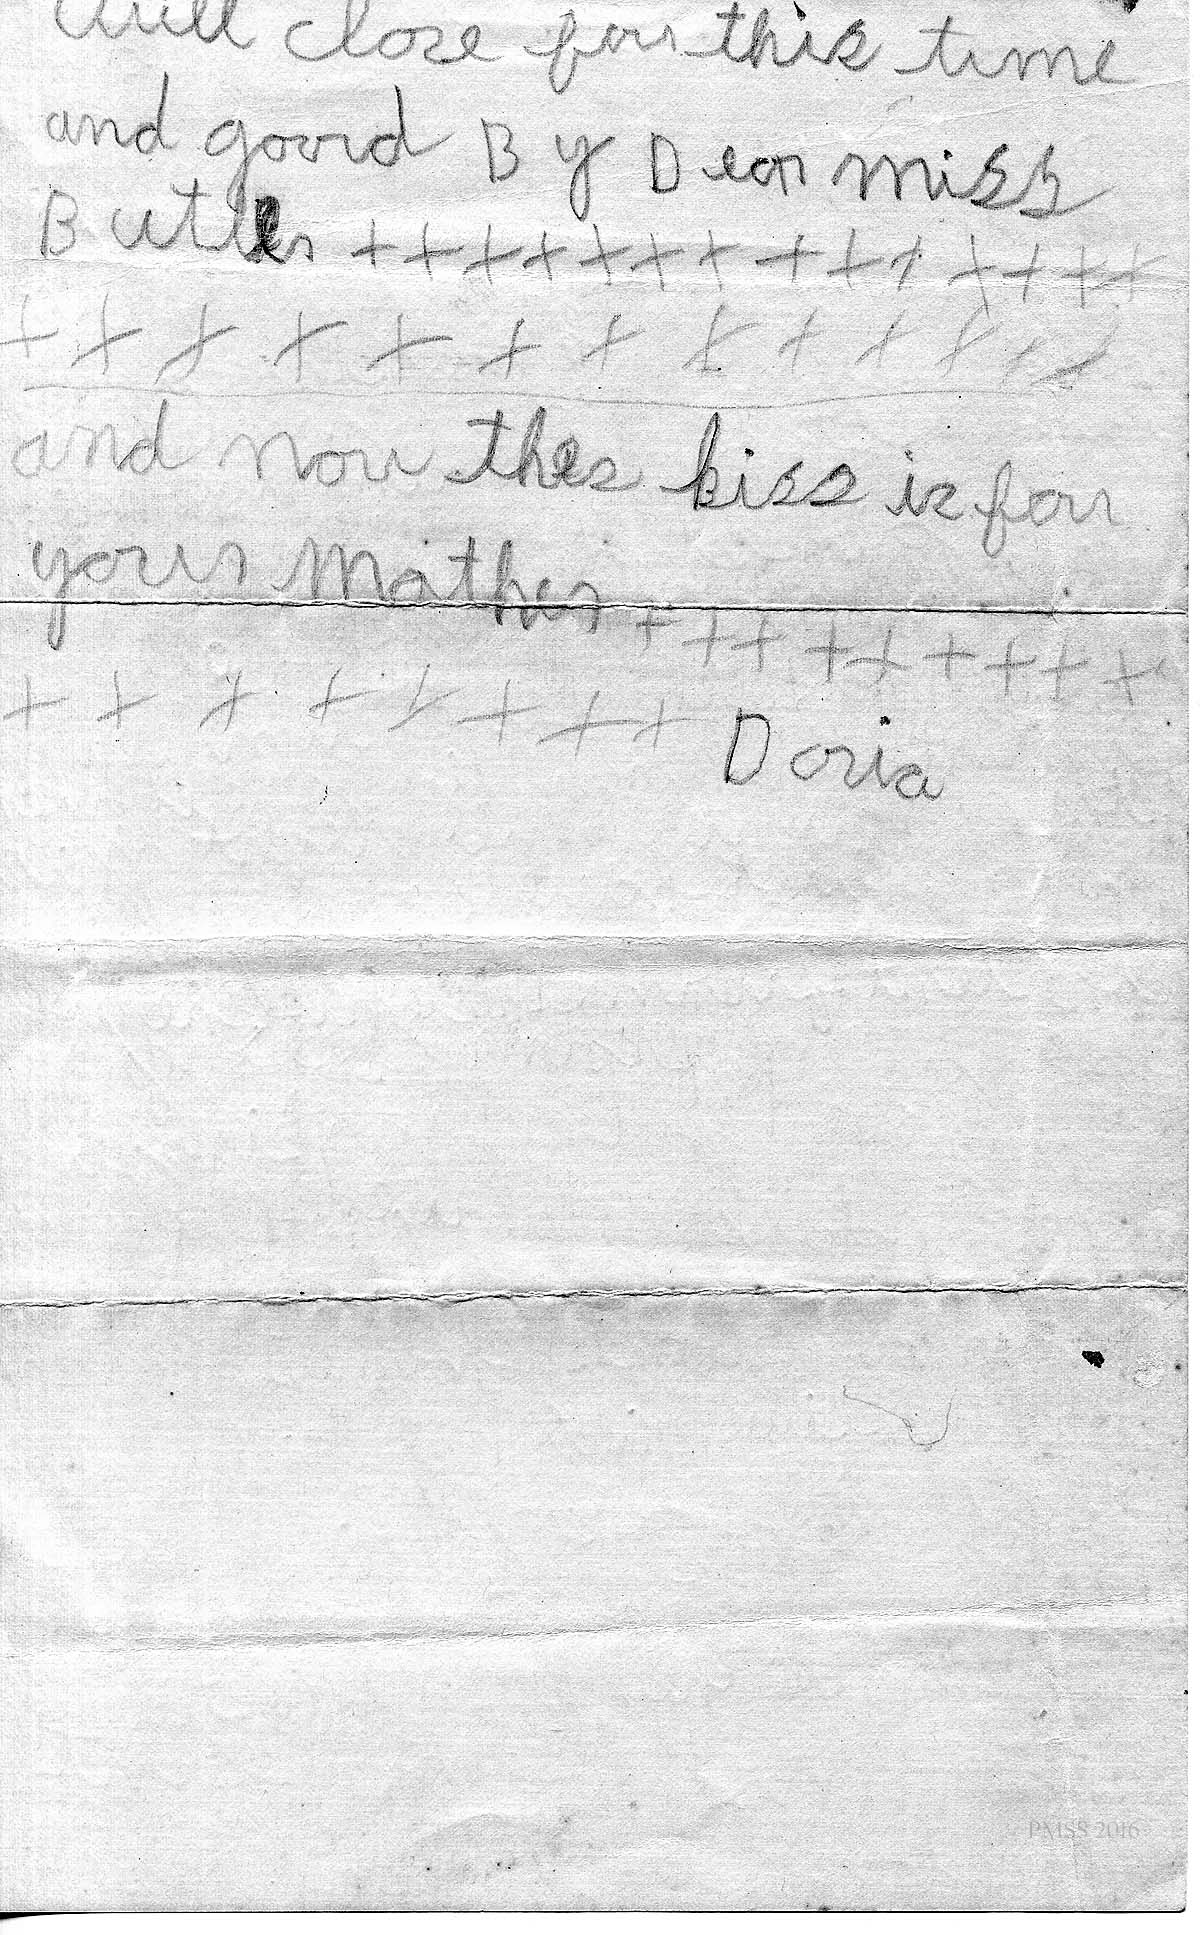 Will close for this time
and good By Dear miss
Butler + + + + + + + + + + + + + +
+ + + + + + + + + + + + +
and now thes kiss is for
your Mother + + + + + + + + +
+ + + + + + + + Doria
PMSS 2016